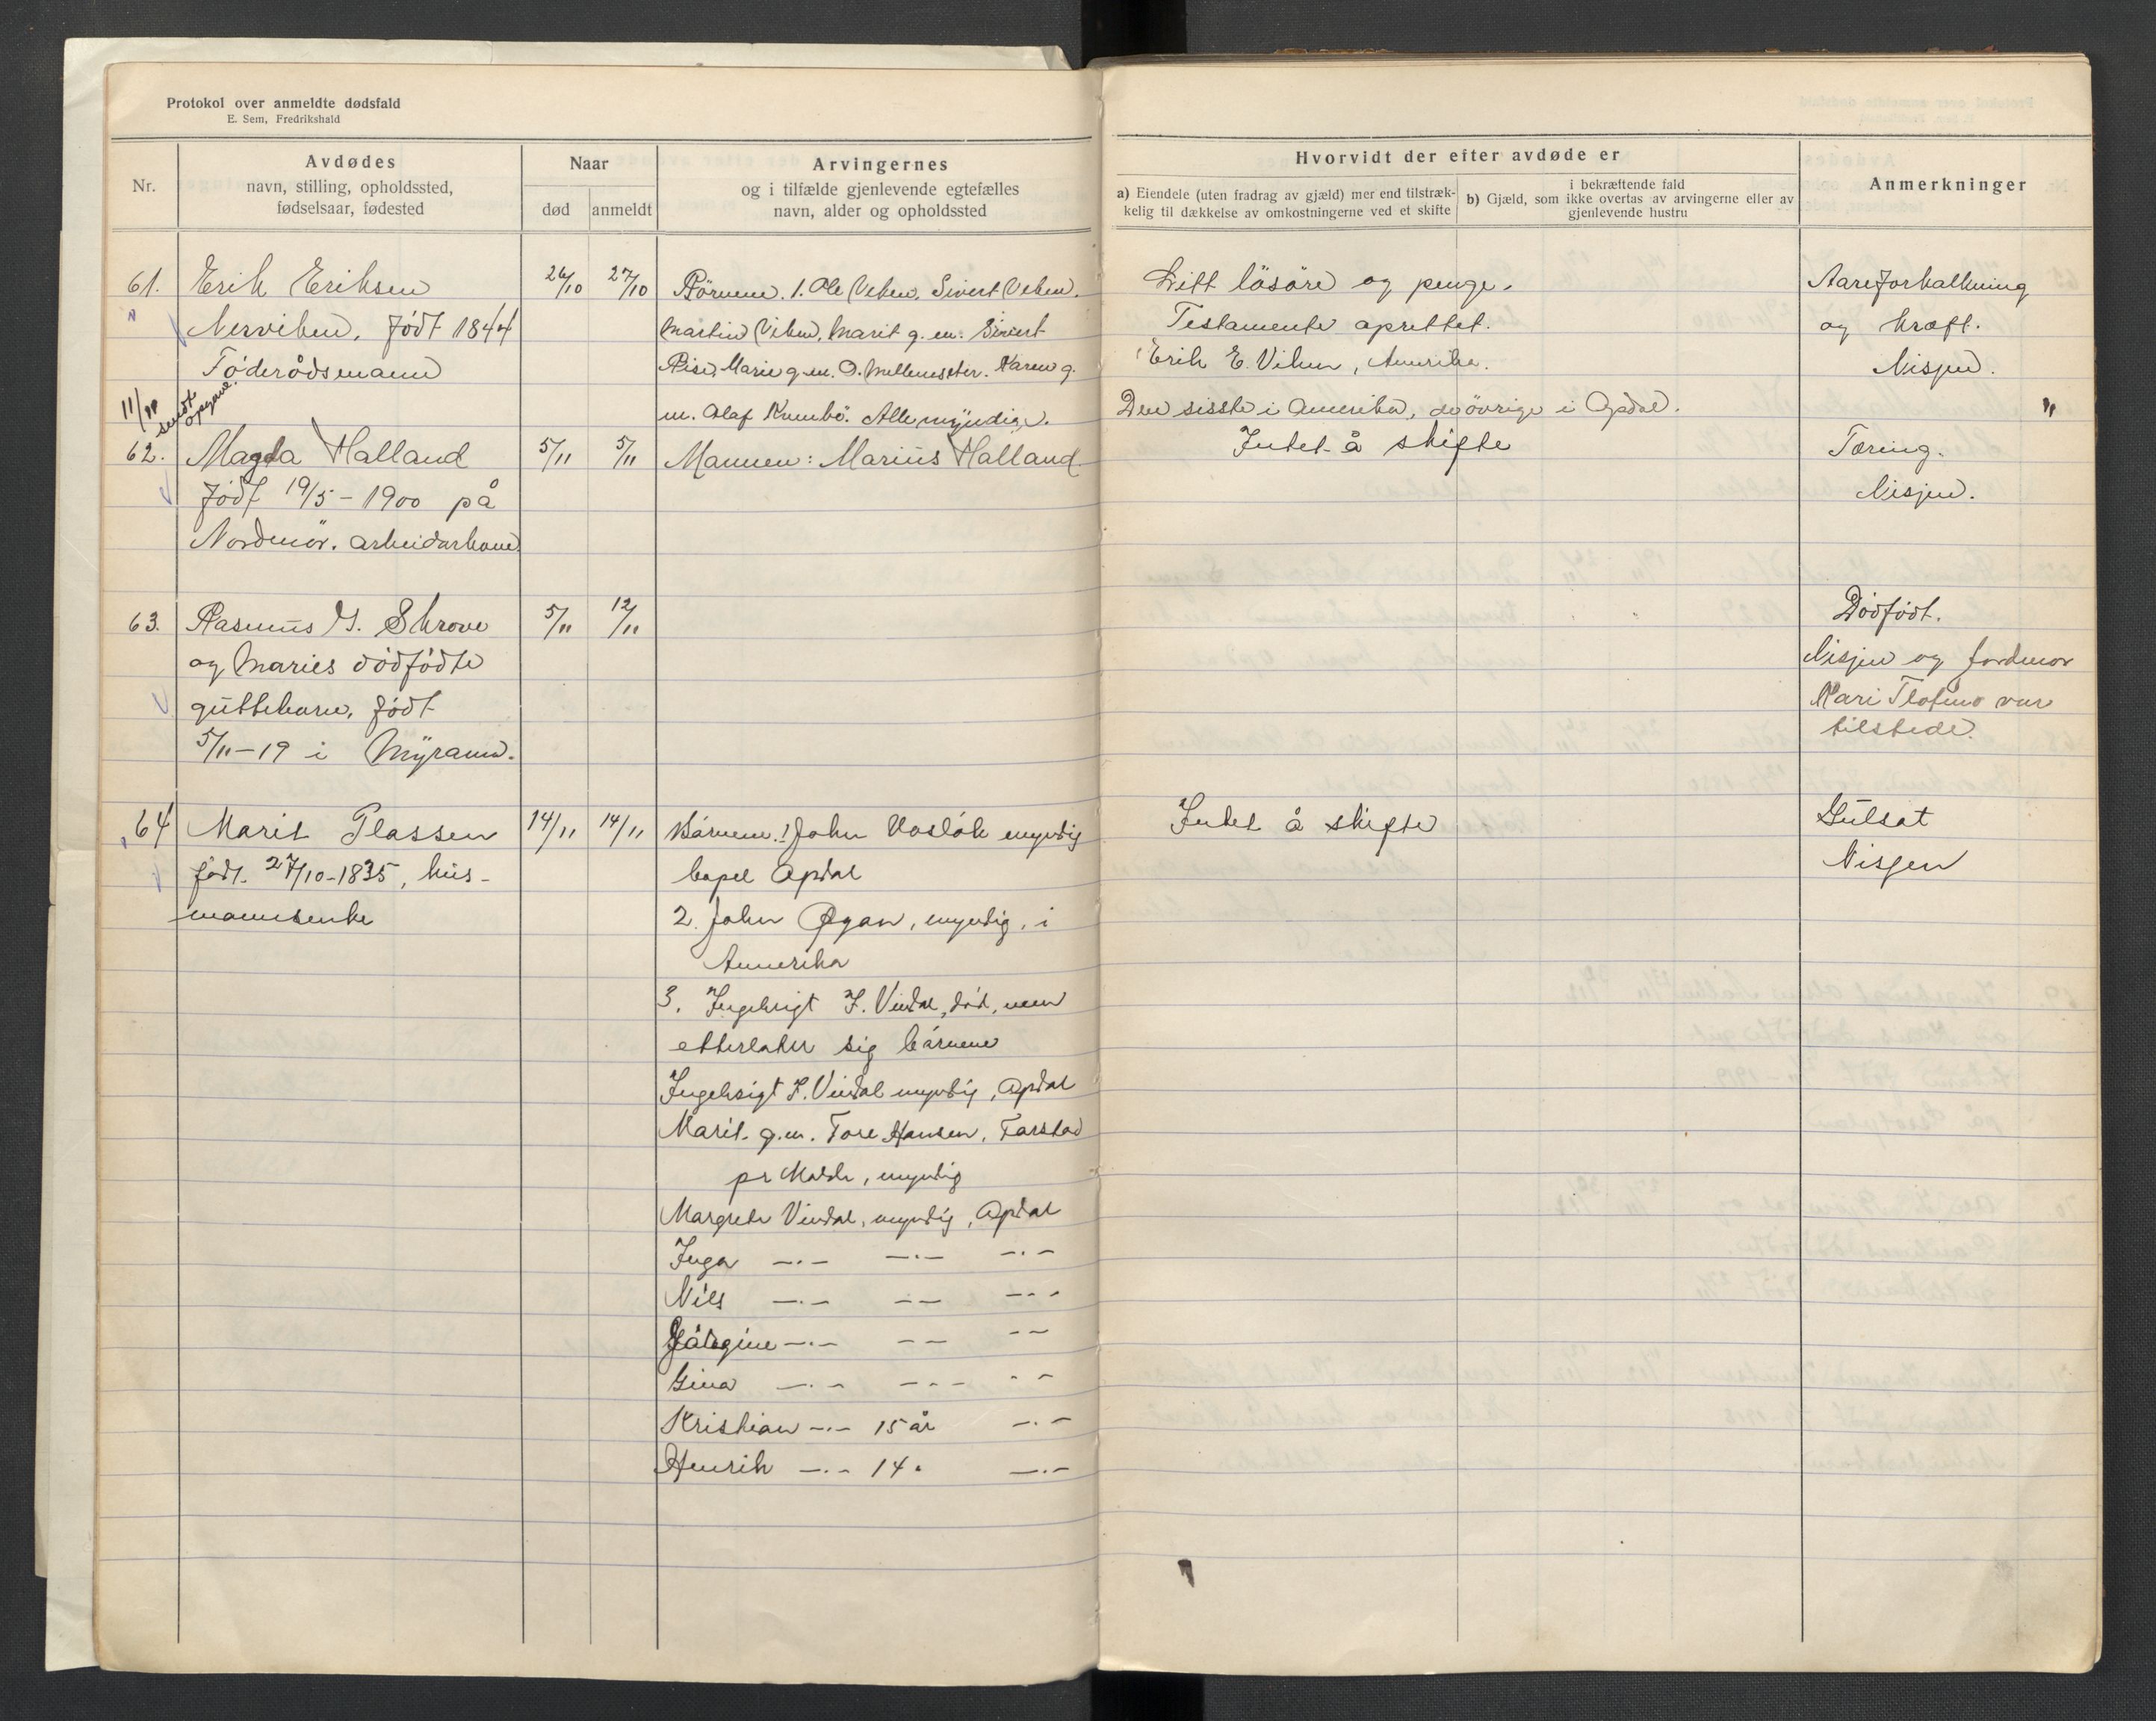 Protokol over anmeldte dødsfald
E. Sem, Fredrikshald
Nr.
Avdødes
navn, stilling, opholdssted,
fødselsaar, fødested
Naar
død
anmeldt
Arvingernes
og i tilfælde gjenlevende egtefælles
navn, alder og opholdssted
Hvorvidt der efter avdøde er
a) Eiendele (uten fradrag av gjæld) mer end tilstræk-
kelig til dækkelse av omkostningerne ved et skifte
i bekræftende fald
b) Gjæld, som ikke overtas av arvingerne eller av
gjenlevende hustru
Anmerkninger
61.
Erik Eriksen
Nerviken, født 1844
Föderådsmann
26/10
27/10
Börnene. 1. Ole Viken, Sivert Viken,
Martin Viken, Marit g. m. Sivert
Rise, Marie g. m. O. Mellemseter. Karen g.
m. Olaf Krumbö. Alle myndige.
Litt lösöre og penge.
Testamente oprettet.
Erik E. Viken, Amerika.
Den sisste i Amerika, de övrige i Opdal.
Aareforkalkning
og kræft.
Nisjen.
11/11 sendt opgave.
62.
Magda Halland
født 19/5 - 1900 på
Nordmör. arbeidarkone
5/11
5/11
Mannen: Marius Halland
Intet å skifte
Tæring.
Nisjen.
63.
Rasmus I. Skrove
og Maries dödfödte
guttebarn, födt
5/11 - 19 i Myrann.
5/11
12/11
Dödfödt.
Nisjen og jordmor
Mari Tlotmo var
tilstede.
64
Marit Plassen
født. 27/10-1835, hus-
mannsenke
14/11
14/11
Bárnene: 1 John Vosløk myndig
bopel Opdal
2. John Øgan, myndig, i
Amerika
3. Ingebrigt J. Vindal, død, men
etterlater sig bárnene
Ingebrigt I. Vindal myndig, Opdal
Marit g.m. Tore Hansen, Farstad
pr Molde, myndig
Margrete Vindal, myndig, Opdal
Inga -.- -.- -.-
Nils -.- -- -.-
-.- -- --
Gina -.- --- --
Kristian -.- 15 år -.-
Henrik -.- 14 " -.-
Intet å skifte
Gulsot
Nisjen